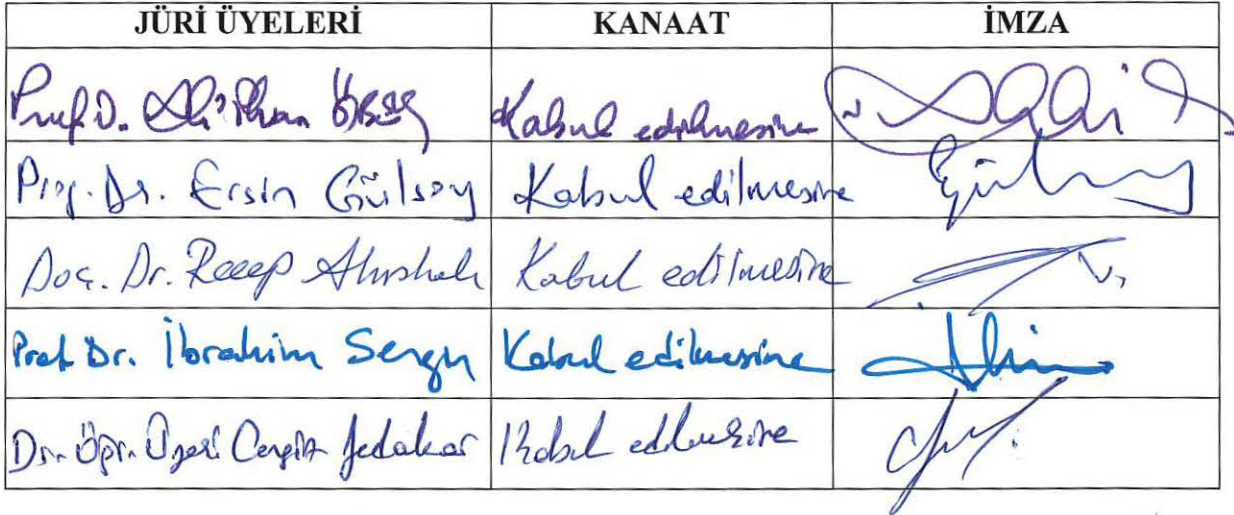 JÜRİ ÜYELERİ KANAAT İMZA
Prof. D. Ali İhsan Kabul edilmesine
Prof. Dr. Ersin Gülsoy Kabul edilmesine
Doç. Dr. Recep Kabul edilmesine
Prof. Dr. İbrahim Kabul edilmesine
Dr. Öğr. Üyesi Cengiz Fedakar Kabul edilmesine